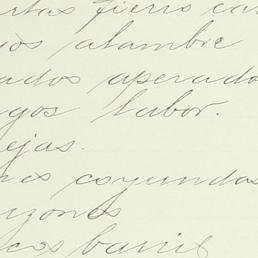 rtas fierro car
ios alambre
ados aperado
gos labor.
ejas.
nes coyundas
uzones
cos barril